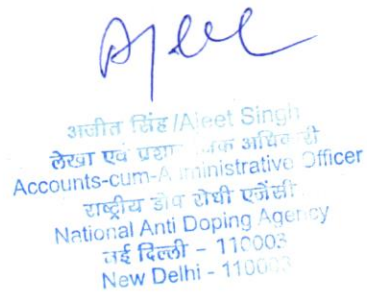 Ajeet
अजीत सिंह /Ajeet Singh
लेखा एवं
Accounts-cum-A ministrative Officer
राष्ट्रीय डोप रोधी एजेंसी
National Anti Doping Agency
नई दिल्ली - 110003
New Delhi - 110003